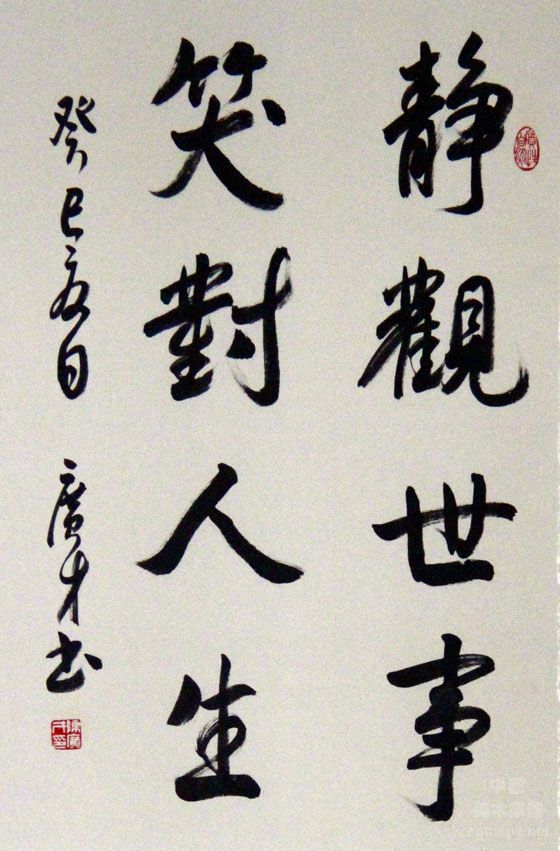 靜觀世事
笑對人生
癸巳交日 廣才书